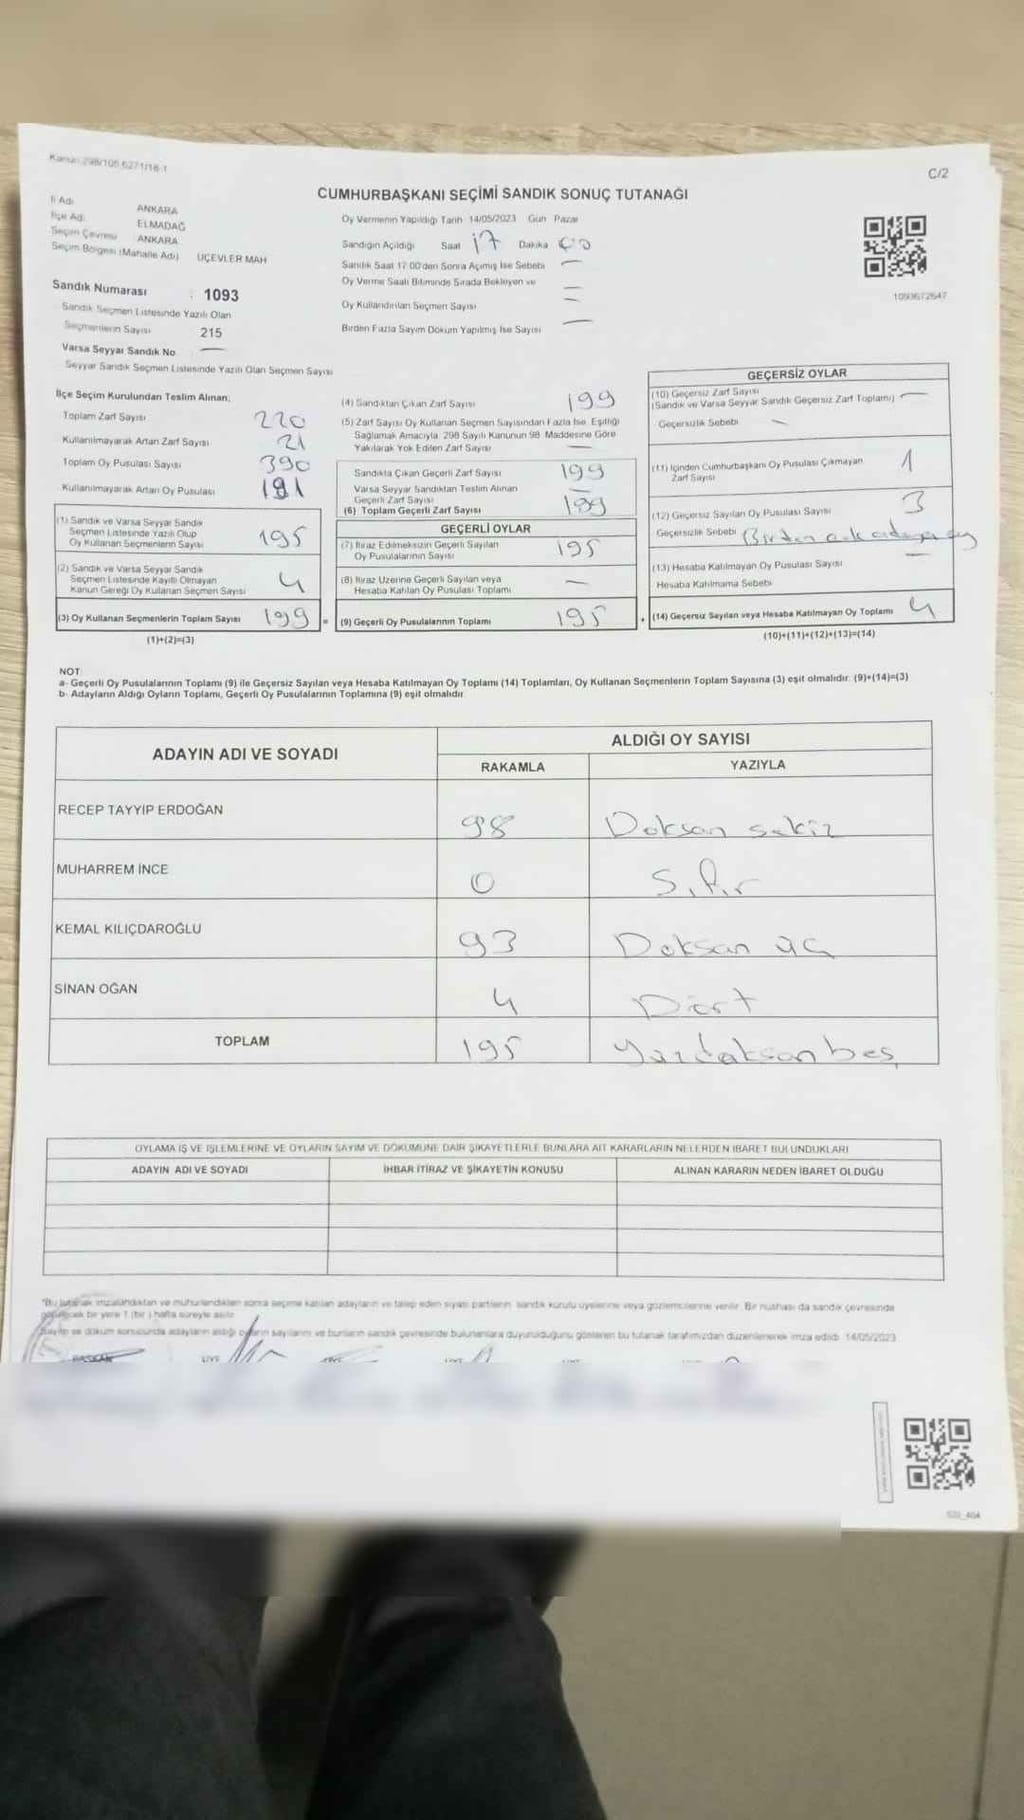 Kanun 298/105 6271/18-1
C/2
CUMHURBAŞKANI SEÇİMİ SANDIK SONUÇ TUTANAĞI
İl Adı ANKARA
İlçe Adı ELMADAĞ
Seçim Çevresi ANKARA
Seçim Bölgesi (Mahalle Adı) ÜÇEVLER MAH
Sandık Numarası : 1093
Sandık Seçmen Listesinde Yazılı Olan
Seçmenlerin Sayısı 215
Varsa Seyyar Sandık No —
Seyyar Sandık Seçmen Listesinde Yazılı Olan Seçmen Sayısı
Oy Vermenin Yapıldığı Tarih 14/05/2023 Gün Pazar
Sandığın Açıldığı Saat 17 Dakika
Sandık Saat 17 00'den Sonra Açımış İse Sebebi —
Oy Verme Saati Bitiminde Sırada Bekleyen ve —
Oy Kullandırılan Seçmen Sayısı —
Birden Fazla Sayım Döküm Yapılmış İse Sayısı —
1093672647
İlçe Seçim Kurulundan Teslim Alınan;
Toplam Zarf Sayısı 220
Kullanılmayarak Artan Zarf Sayısı 21
Toplam Oy Pusulası Sayısı 390
Kullanılmayarak Artan Oy Pusulası 191
(1) Sandık ve Varsa Seyyar Sandık
Seçmen Listesinde Yazılı Olup
Oy Kullanan Seçmenlerin Sayısı 195
(2) Sandık ve Varsa Seyyar Sandık
Seçmen Listesinde Kayıtlı Olmayan
Kanun Gereği Oy Kullanan Seçmen Sayısı 4
(3) Oy Kullanan Seçmenlerin Toplam Sayısı 199 =
(1)+(2)=(3)
(4) Sandıktan Çıkan Zarf Sayısı 199
(5) Zarf Sayısı Oy Kullanan Seçmen Sayısından Fazla İse, Eşitliği
Sağlamak Amacıyla 298 Sayılı Kanunun 98. Maddesine Göre
Yakılarak Yok Edilen Zarf Sayısı —
Sandıkta Çıkan Geçerli Zarf Sayısı 199
Varsa Seyyar Sandıktan Teslim Alınan
Geçerli Zarf Sayısı —
(6) Toplam Geçerli Zarf Sayısı 199
GEÇERLİ OYLAR
(7) İtiraz Edilmeksizin Geçerli Sayılan
Oy Pusulalarının Sayısı 195
(8) İtiraz Üzerine Geçerli Sayılan veya
Hesaba Katılan Oy Pusulası Toplamı —
(9) Geçerli Oy Pusulalarının Toplamı 195 +
GEÇERSİZ OYLAR
(10) Geçersiz Zarf Sayısı
(Sandık ve Varsa Seyyar Sandık Geçersiz Zarf Toplamı) —
Geçersizlik Sebebi —
(11) İçinden Cumhurbaşkanı Oy Pusulası Çıkmayan
Zarf Sayısı 1
(12) Geçersiz Sayılan Oy Pusulası Sayısı 3
Geçersizlik Sebebi Birden
(13) Hesaba Katılmayan Oy Pusulası Sayısı —
Hesaba Katılmama Sebebi
(14) Geçersiz Sayılan veya Hesaba Katılmayan Oy Toplamı 4
(10)+(11)+(12)+(13)=(14)
NOT:
a- Geçerli Oy Pusulalarının Toplamı (9) ile Geçersiz Sayılan veya Hesaba Katılmayan Oy Toplamı (14) Toplamları, Oy Kullanan Seçmenlerin Toplam Sayısına (3) eşit olmalıdır. (9)+(14)=(3)
b- Adayların Aldığı Oyların Toplamı, Geçerli Oy Pusulalarının Toplamına (9) eşit olmalıdır
ADAYIN ADI VE SOYADI
ALDIĞI OY SAYISI
RAKAMLA YAZIYLA
RECEP TAYYIP ERDOĞAN 98 Doksan sekiz
MUHARREM İNCE 0 Sıfır
KEMAL KILIÇDAROĞLU 93 Doksan üç
SİNAN OĞAN 4 Dört
TOPLAM 195 Yüzdoksanbeş
OYLAMA İŞ VE İŞLEMLERİNE VE OYLARIN SAYIM VE DÖKÜMÜNE DAİR ŞİKAYETLERLE BUNLARA AİT KARARLARIN NELERDEN İBARET BULUNDUKLARI
ADAYIN ADI VE SOYADI İHBAR İTİRAZ VE ŞİKAYETİN KONUSU ALINAN KARARIN NEDEN İBARET OLDUĞU
"Bu tutanak imzalandıktan ve mühürlendikten sonra seçime katılan adayların ve talep eden siyasi partilerin sandık kurulu üyelerine veya gözlemcilerine verilir. Bir nüshası da sandık çevresinde
görülecek bir yere 1 (bir) hafta süreyle asılır
Sayım ve döküm sonucunda adayların aldığı oyların sayılarını ve bunların sandık çevresinde bulunanlara duyurulduğunu gösteren bu tutanak tarafımızdan düzenlenerek imza edildi. 14/05/2023
BAŞKAN ÜYE ÜYE